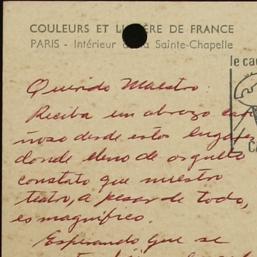 COULEURS ET LUMIÈRE DE FRANCE
PARIS - Intérieur de la Sainte-Chapelle
le ca
Querido Maestro:
Reciba un abrazo cari
ñoso desde estos lugares
donde lleno de orgullo
constato que nuestro
teatro, a pesar de todo,
es magnífico.
Esperando que se